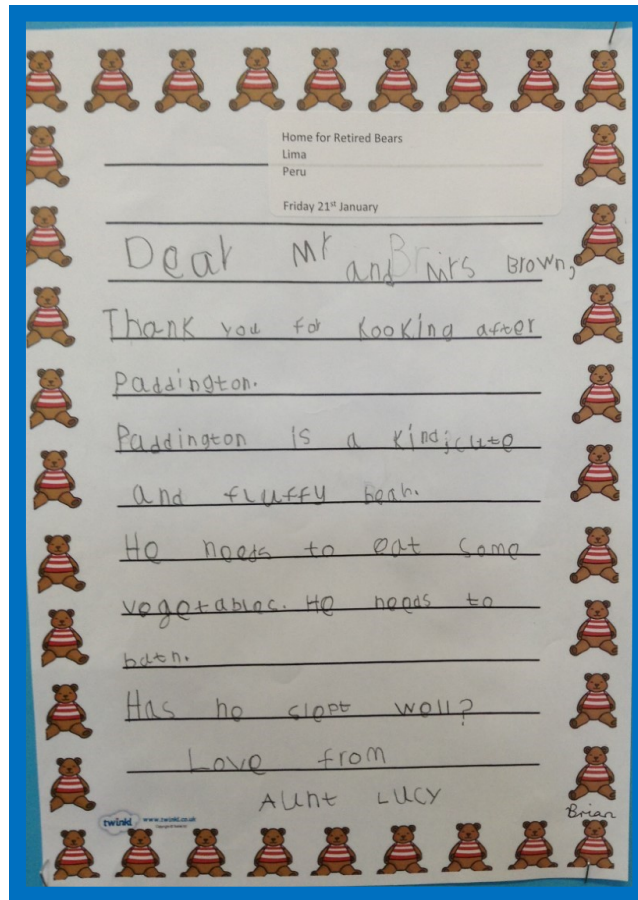 Home for Retired Bears
Lima
Peru
Friday 21st January
Dear Mr and Mrs Brown,
Thank you for kooking after
Paddington.
Paddington is a kind, cute
and fluffy beah.
He needs to eat some
vegetables. He needs to
bath.
Has he slept well?
Love from
Aunt Lucy
Brian
twinkl www.twinkl.co.uk